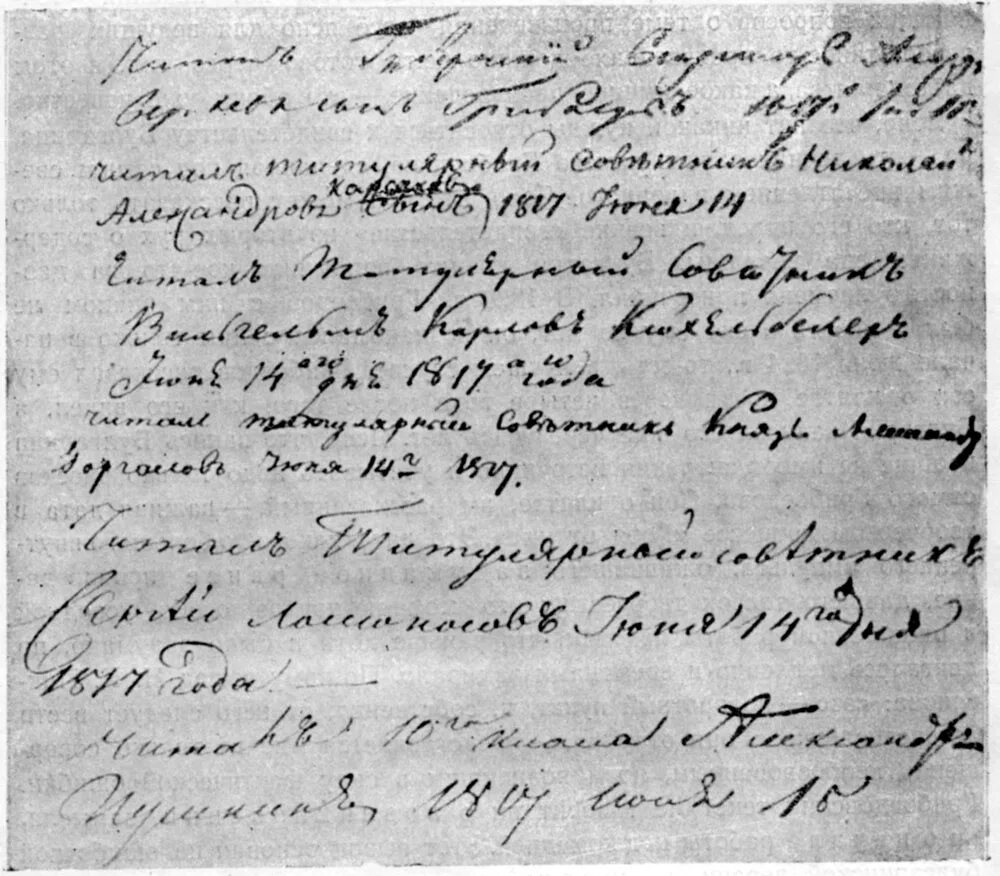 Читалъ Губернскій Секретарь Александръ
Сергѣевъ сынъ Грибоѣдовъ 1817 Іюня 15
Читалъ титулярный совѣтникъ Николай
Корсаковъ
Александровъ Сынъ 1817 Іюня 14
Читалъ Титулярный Совѣтникъ
Вильгельмъ Карловъ Кюхельбекеръ
Іюнѣ 14 аго днѣ 1817 а го года
Читалъ титулярный совѣтникъ Князь Александръ
Горчаковъ Іюня 14 г 1817.
Читалъ Титулярный совѣтникъ
Сергѣй Ломоносовъ Іюня 14 го дня
1817 года
Читалъ 10 го класса Александръ
Пушкинъ, 1817 июня 15